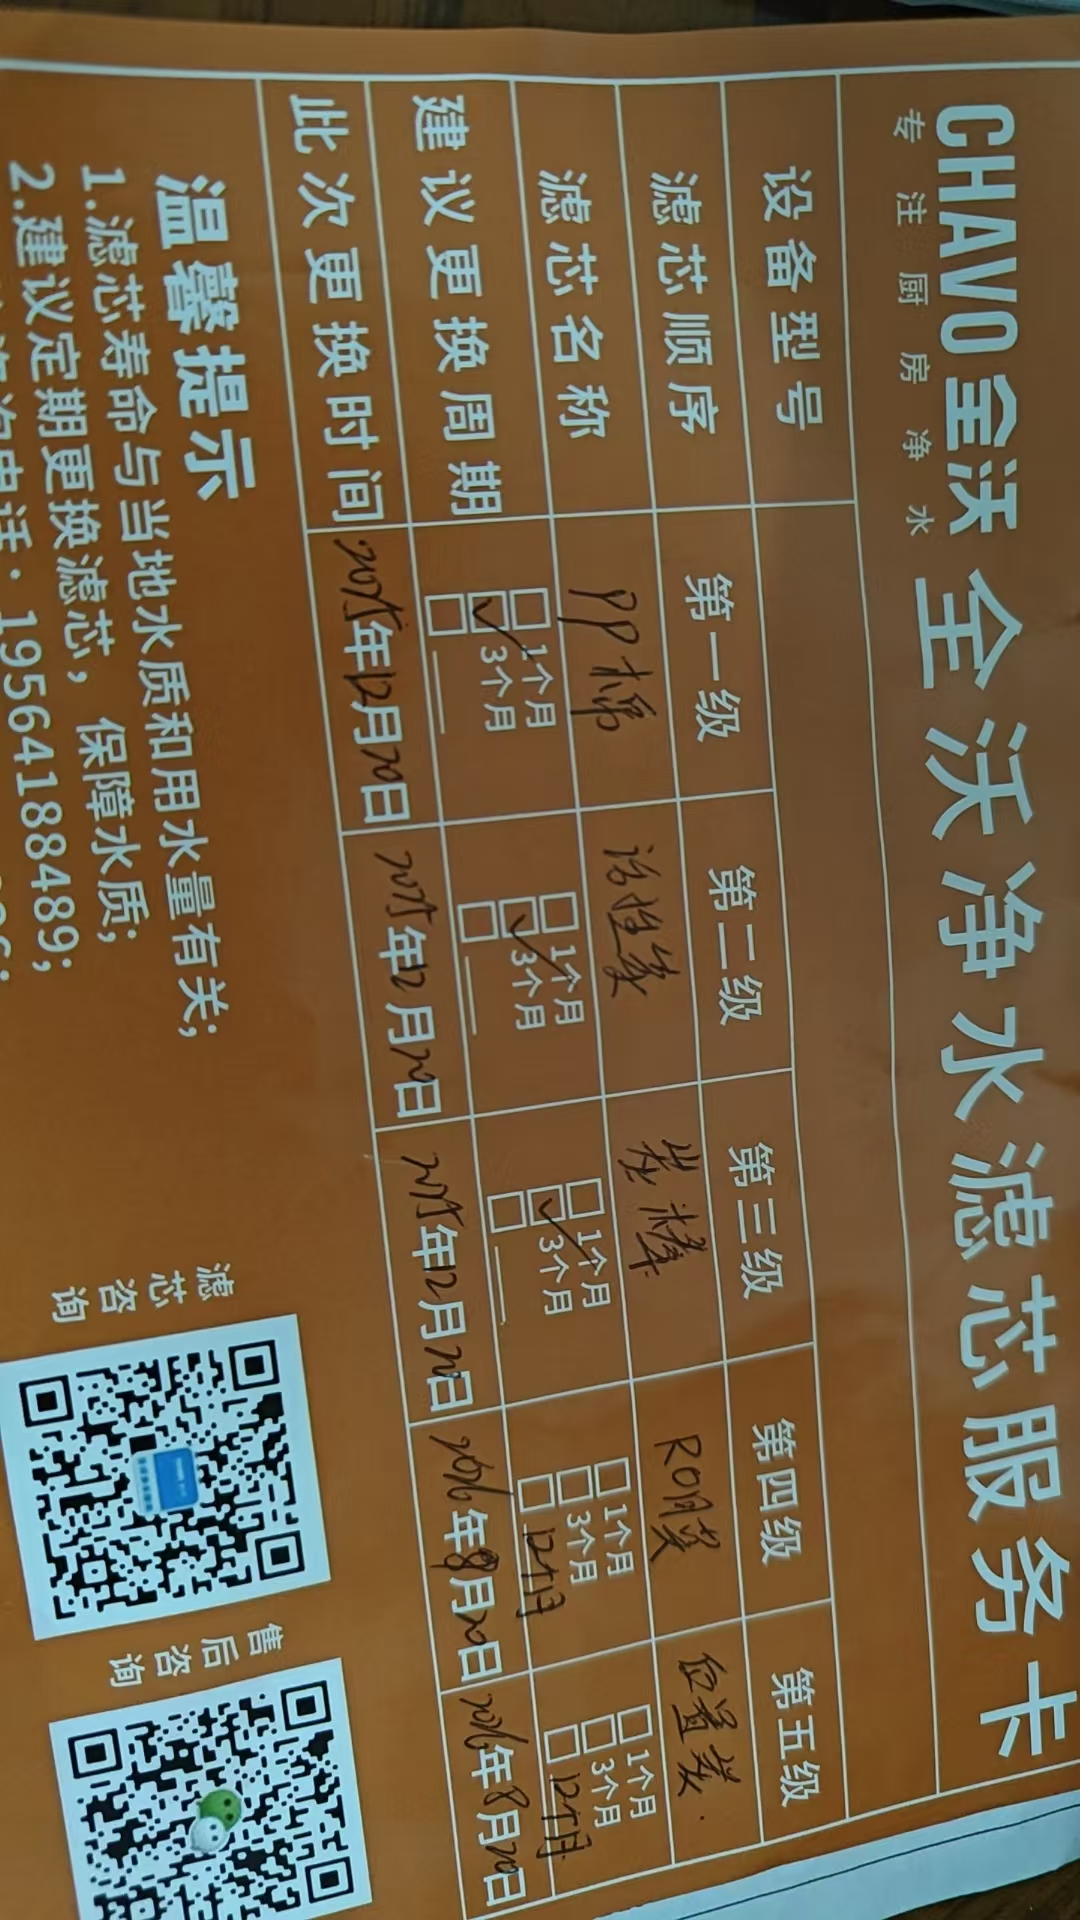 CHAVO全沃 全沃净水滤芯服务卡
专注厨房净水
设备型号
滤芯顺序 第一级 第二级 第三级 第四级 第五级
滤芯名称 PP棉 活性炭 炭棒 RO膜 后置炭
建议更换周期 □1个月 ☑3个月 □ □1个月 ☑3个月 □ □1个月 ☑3个月 □ □1个月 □3个月 □12个月 □1个月 □3个月 □12个月
此次更换时间 2025年12月20日 2025年12月20日 2025年12月20日 2026年8月20日 2026年8月20日
温馨提示
1.滤芯寿命与当地水质和用水量有关;
2.建议定期更换滤芯，保障水质;
19564188489;
滤芯咨询
售后咨询